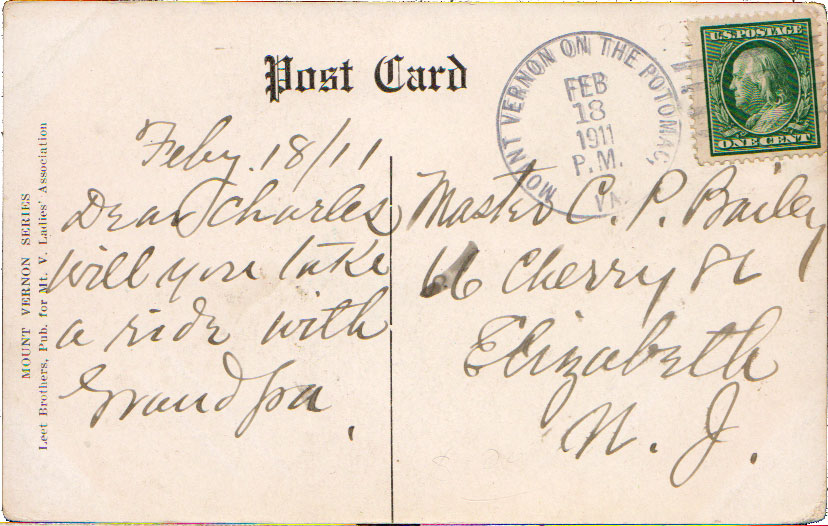 Post Card
MOUNT VERNON ON THE POTOMAC,
VA.
FEB
18
1911
P.M.
U.S. POSTAGE
ONE CENT
MOUNT VERNON SERIES
Leet Brothers, Pub. for Mt. V. Ladies' Association
Feby. 18/11
Dear Charles
will you take
a ride with
Grandpa.
Master C. P. Bailey
66 Cherry St
Elizabeth
N. J.